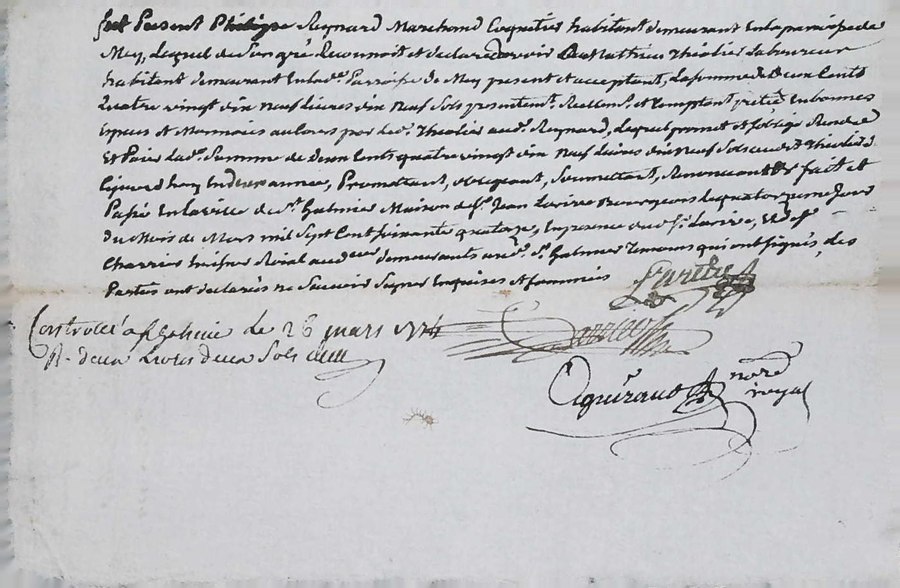 fut Présent Philippe Reynard Marchand Coquetier habitant demeurant En la parroisse de
Mey, Lequel de Son gré Reconnoit et declare devoir A Mathieu Thiolier Laboureur
habitant demeurant En lad.e Parroisse de Mey present et acceptant, La somme de Deux Cents
Quatre vingt dix Neuf Livres dix Neuf Sols presentem.t Reellem.t et Comptant prêtée En bonnes
Espèces et Monnoies au Cours par led.t Thiolier aud.t Reynard, Lequel promet et s'oblige Rendre
Et Paier Lad.e Somme de deux Cents quatre vingt dix Neuf Livres dix Neuf Sols audit Thiolier
D'aujourd'huy En une année, Promettant, obligeant, Soumettant, Renonceant &c fait et
Passé En la ville de S.t Galmier Maison de S.r Jean Bourgeois Le quatorzieme Jour
du Mois de Mars mil Sept Cent soixante quatorze, En presence dud. S.r, Et de S.r
Charrier huissier Roial demeurants aud.t S.t Galmier Temoins qui ont signés, des
Parties ont declarés ne Scavoir Signer Enquises et sommées
Controllé a S.t Galmier le 26 mars 1774
R. deux Livres deux Sols
no.re
royal